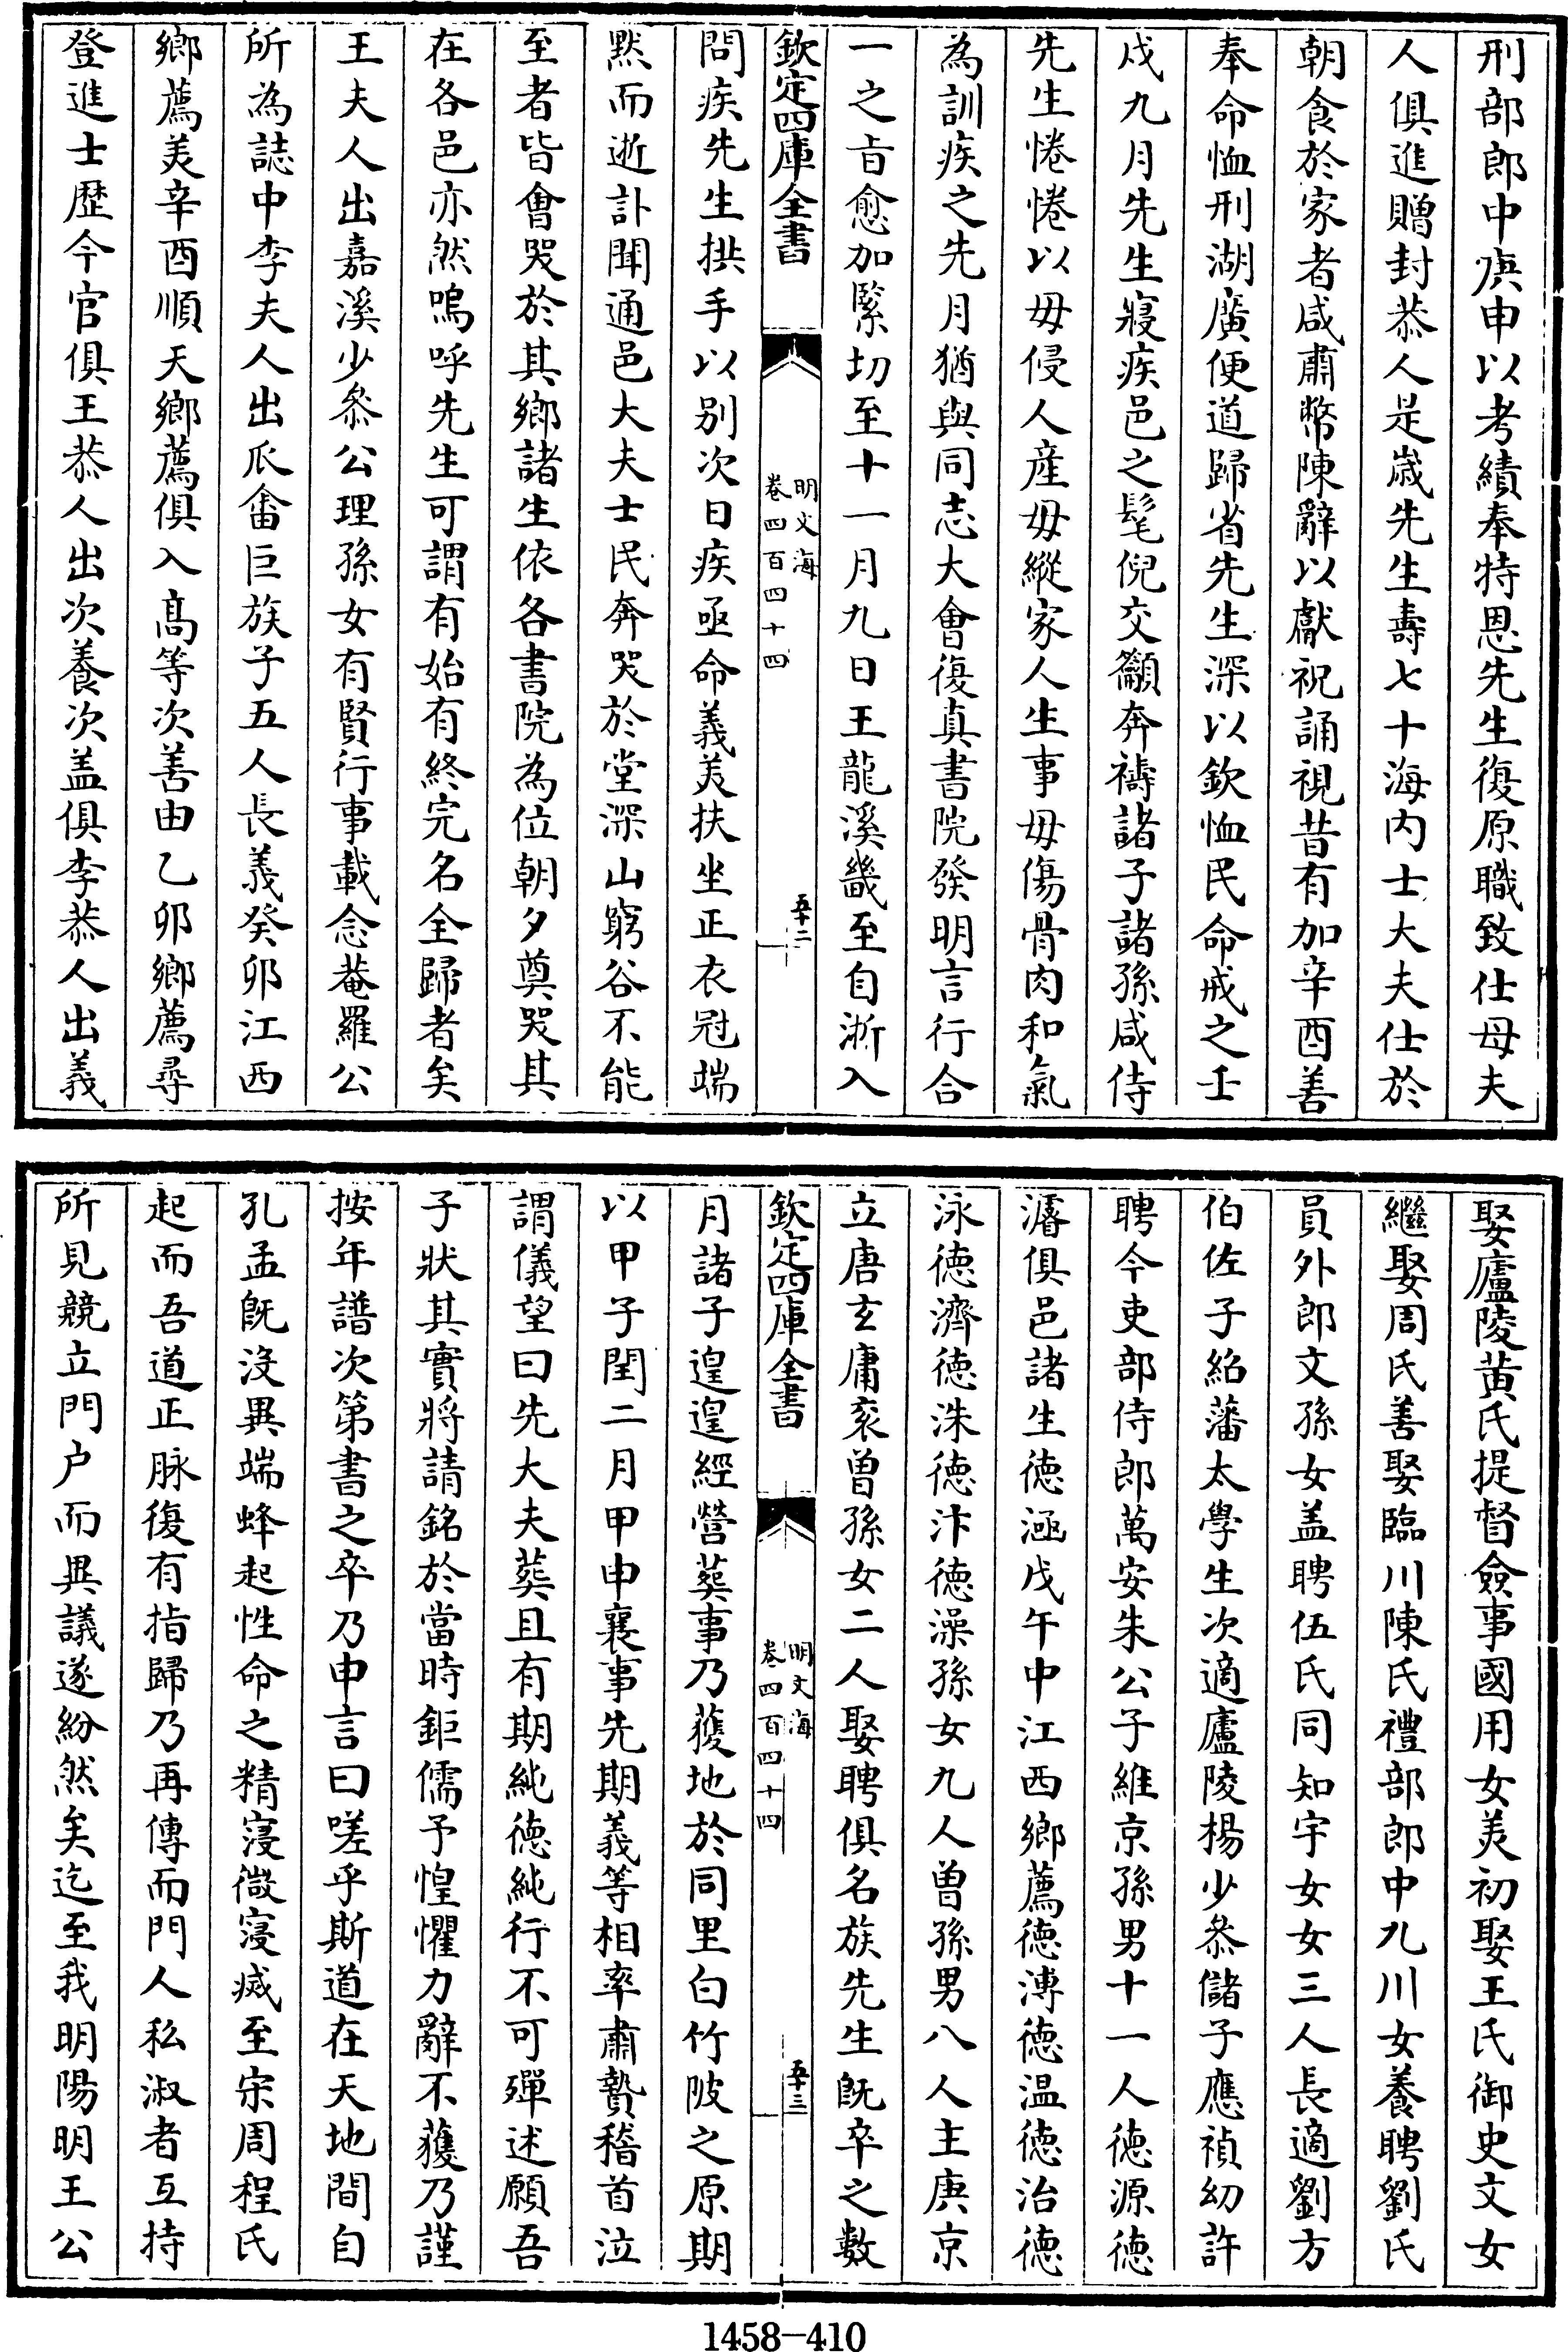 刑部郎中庚申以考績奉特恩先生復原職致仕母夫
人俱進贈封恭人是歲先生壽七十海内士大夫仕於
朝食於家者咸肅幣陳辭以獻祝誦視昔有加辛酉善
奉命恤刑湖廣便道歸省先生深以欽恤民命戒之壬
戌九月先生寢疾邑之髦倪交籲奔禱諸子諸孫咸侍
先生惓惓以毋侵人産毋縱家人生事毋傷骨肉和氣
為訓疾之先月猶與同志大會復真書院發明言行合
一之旨愈加緊切至十一月九日王龍溪畿至自浙入
欽定四庫全書
明文海
卷四百四十四
五十二
問疾先生拱手以别次日疾亟命義美扶坐正衣冠端
默而逝訃聞通邑大夫士民奔哭於堂深山窮谷不能
至者皆會哭於其鄉諸生依各書院為位朝夕奠哭其
在各邑亦然嗚呼先生可謂有始有終完名全歸者矣
王夫人出嘉溪少叅公理孫女有賢行事載念菴羅公
所為誌中李夫人出瓜畬巨族子五人長義癸卯江西
鄉薦美辛酉順天鄉薦俱入髙等次善由乙卯鄉薦尋
登進士歴今官俱王恭人出次養次盖俱李恭人出義
娶廬陵黄氏提督僉事國用女美初娶王氏御史文女
繼娶周氏善娶臨川陳氏禮部郎中九川女養聘劉氏
員外郎文孫女盖聘伍氏同知宇女女三人長適劉方
伯佐子紹藩太學生次適廬陵楊少叅儲子應禎幼許
聘今吏部侍郎萬安朱公子維京孫男十一人德源德
濬俱邑諸生德涵戊午中江西鄉薦德溥德温德治德
泳德濟德洙德汴德澡孫女九人曽孫男八人主庚京
立唐玄庸衮曽孫女二人娶聘俱名族先生既卒之數
欽定四庫全書
明文海
卷四百四十四
五十三
月諸子遑遑經營葬事乃獲地於同里白竹陂之原期
以甲子閏二月甲申襄事先期義等相率肅贄稽首泣
謂儀望曰先大夫葬且有期純德純行不可殫述願吾
子狀其實將請銘於當時鉅儒予惶懼力辭不獲乃謹
按年譜次第書之卒乃申言曰嗟乎斯道在天地間自
孔孟既没異端蜂起性命之精寖微寖滅至宋周程氏
起而吾道正脉復有指歸乃再傳而門人私淑者互持
所見競立門户而異議遂紛然矣迄至我明陽明王公
1458-410